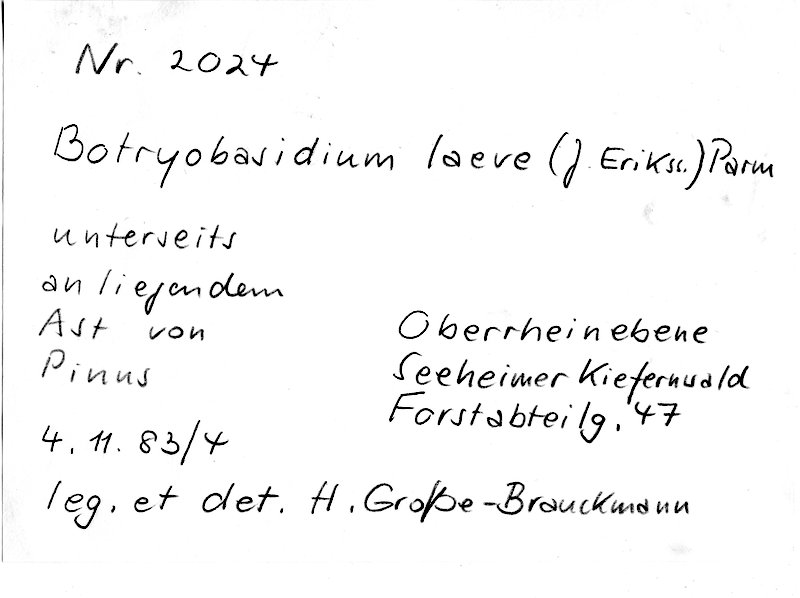 Nr. 2024
Botryobasidium laeve (J. Erikss.) Parm
unterseits
an liegendem
Ast von
Pinus
Oberrheinebene
Seeheimer Kiefernwald
Forstabteilg. 47
4. 11. 83/4
leg. et det. H. Große-Brauckmann